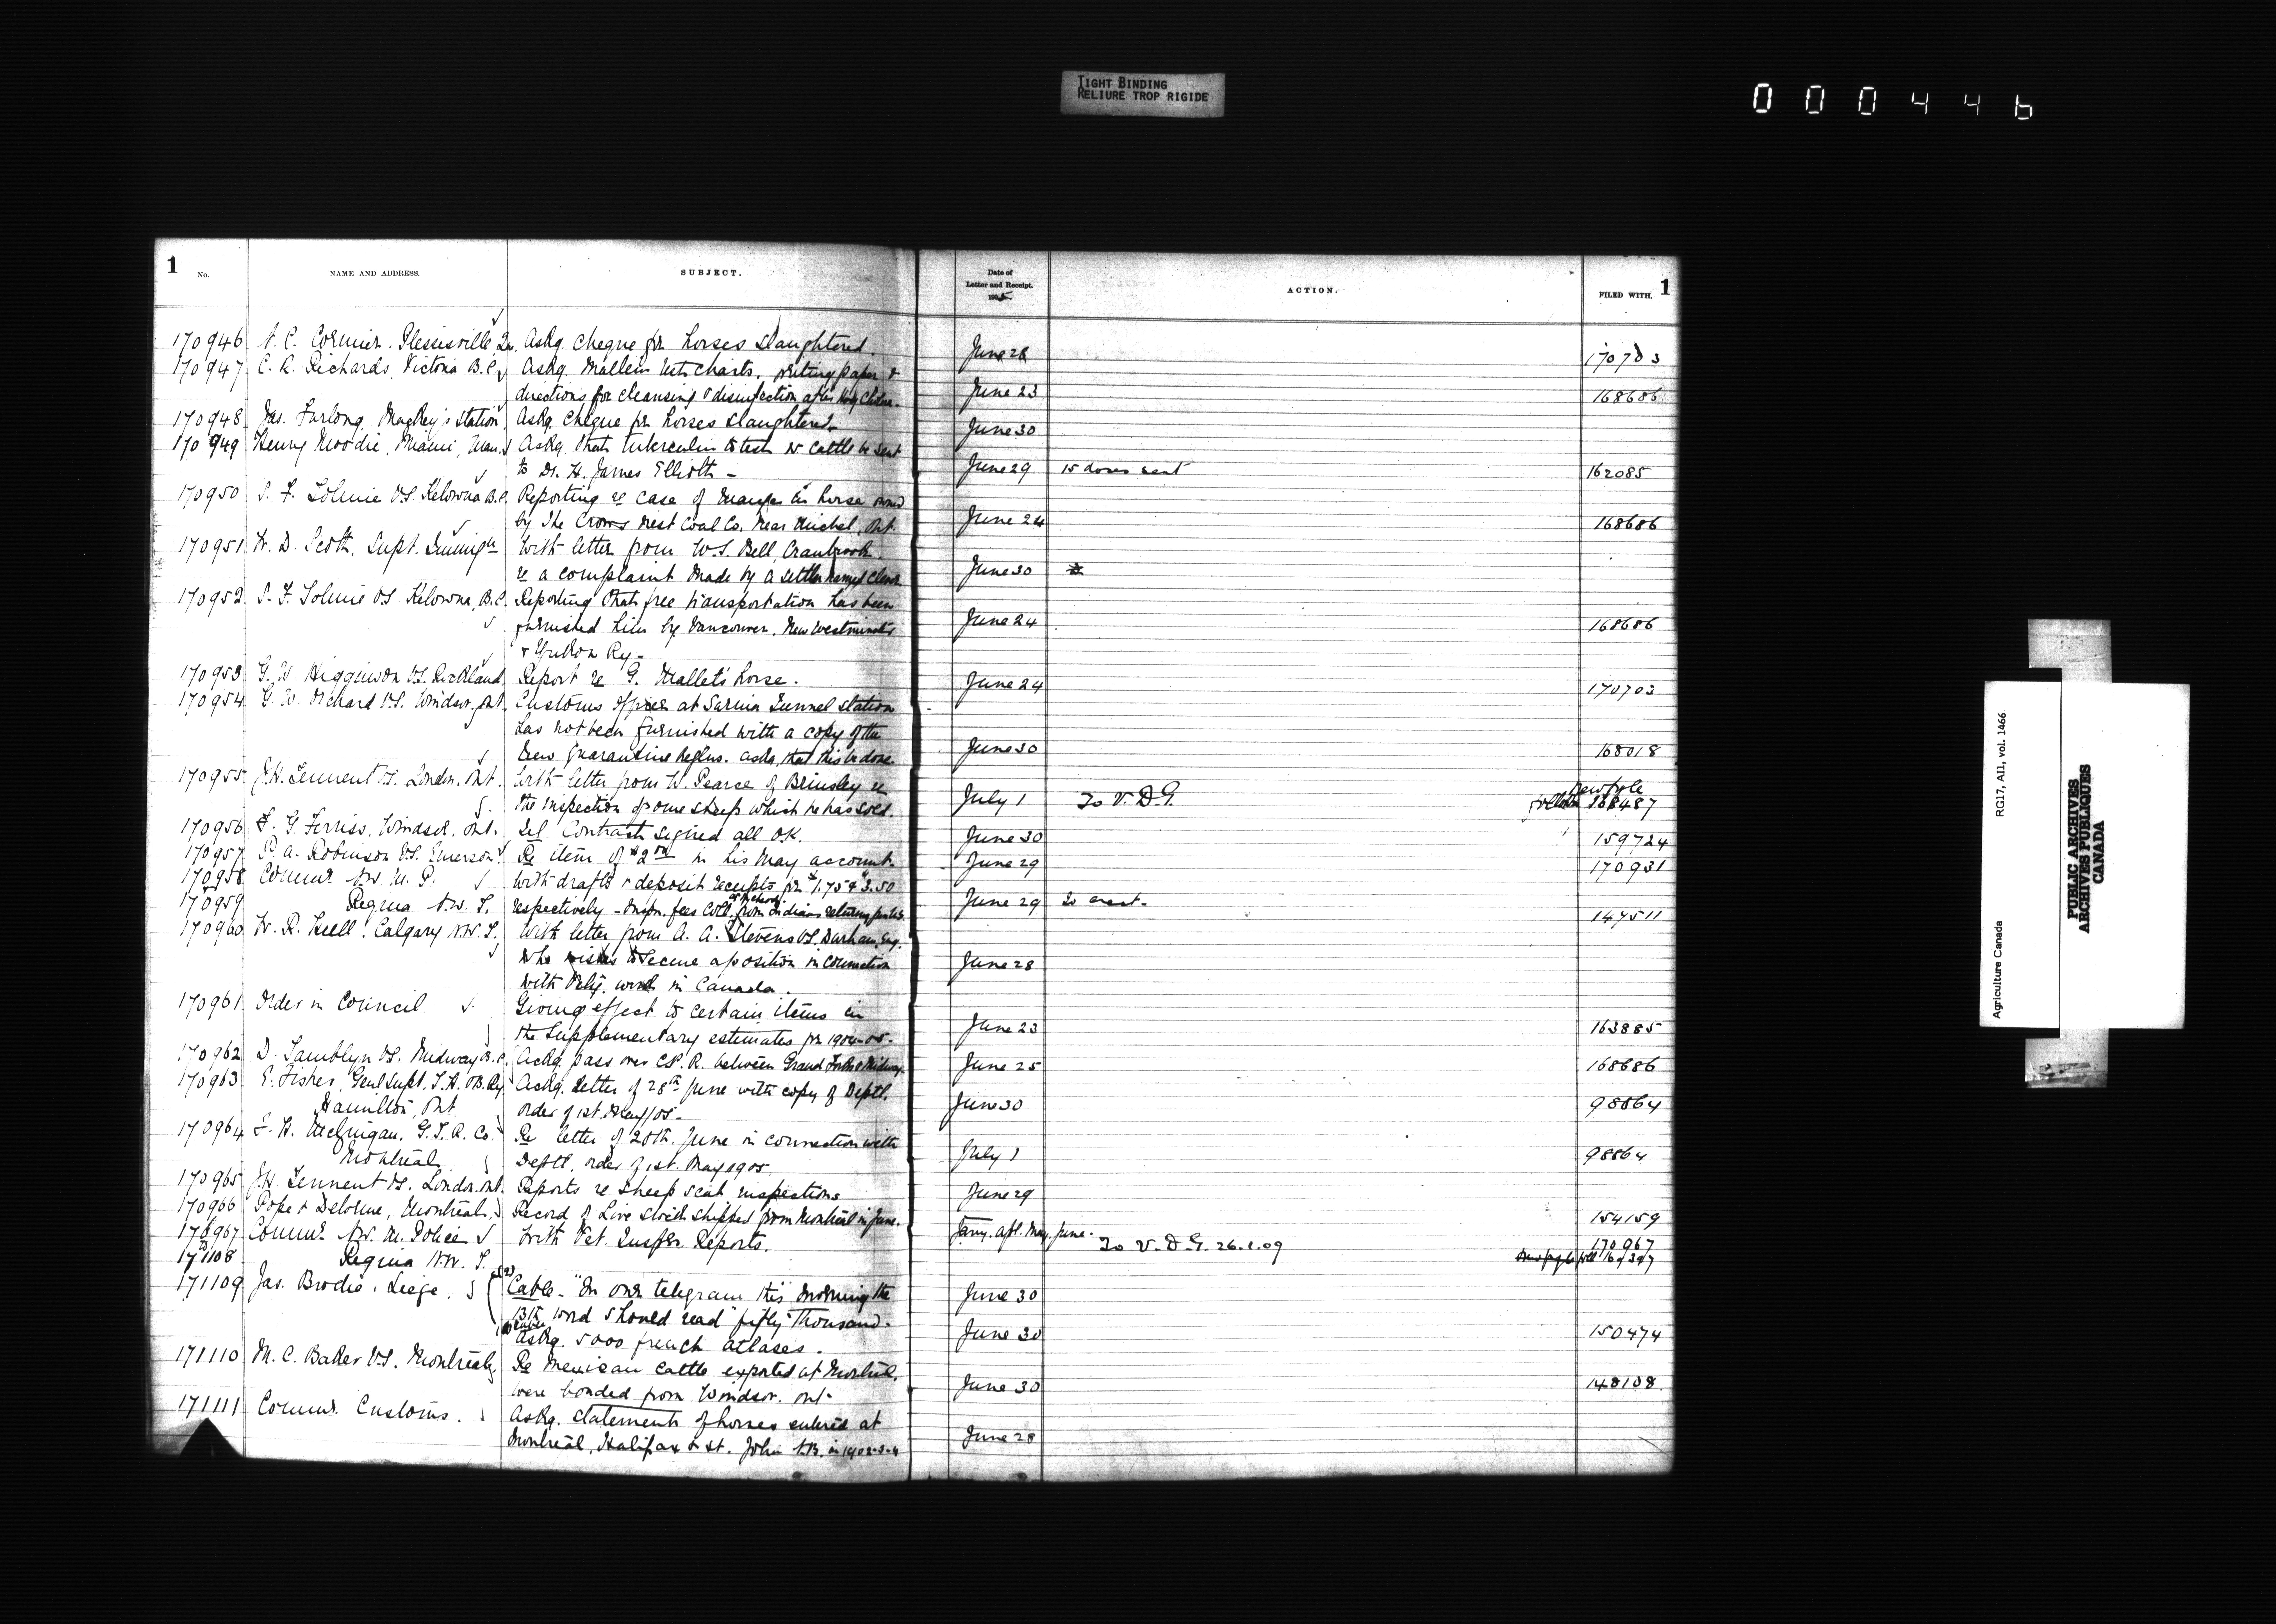 TIGHT BINDING
RELIURE TROP RIGIDE
000446
1 No. NAME AND ADDRESS. SUBJECT. Date of Letter and Receipt. 1905 ACTION. FILED WITH. 1
170946 Cormier. Plessisville, Askg. cheque for horses slaughtered. June 28 170703
170947 E. R. Richards, Victoria B.C. Askg. Mallein test charts, writing paper &
directions for cleansing & disinfection after Hog Cholera. June 23 168686
170948 Jas. Furlong, Mackey's Station, Askg. cheque for horses slaughtered. June 30
170949 Henry Moodie, Miami, Man. Askg. that tuberculin to test cattle be sent
to Dr. H. James Elliott - June 29 15 doses sent 162085
170950 S. F. Tolmie V.S. Kelowna B.C. Reporting re case of mange in horse owned
by The Crows Nest Coal Co. near Michel, June 24 168686
170951 W. D. Scott, Supt. Immign With letter from W. S. Bell, Cranbrook
re a complaint made by a settler named June 30
170952 S. F. Tolmie V.S. Kelowna, B.C. Reporting that free transportation has been
furnished him by Vancouver, New Westminster June 24 168686
& Yukon Ry.
170953 G. W. Higginson V.S. Rockland Report re G. Mallet's horse. June 24 170703
170954 G. W. Orchard V.S. Windsor, Ont. Customs Officer at Sarnia Tunnel Station
has not been furnished with a copy of the
new quarantine reglns. asks that this be done. June 30 168018
170955 J. H. Tennent V.S. London, Ont. With letter from W. Pearce of Brinsley re new file
the inspection of some sheep which he has sold. July 1 To V. D. G. 168487
170956 F. G. Ferriss, Windsor, Ont. Tel Contracts signed all O.K. June 30 159724
170957 S. A. Robinson V.S. Emerson Re item of $2 in his May account. June 29 170931
170958 Commr N.W.M.P. With drafts & deposit receipts for $1.75 & $3.50
170959 Regina N.W.T. respectively - Inspn. fees coll. from Indians returning June 29 To acct. 147511
170960 W. R. Hull, Calgary N.W.T. With letter from A. A. Stevens V.S. Durham, Eng.
who wishes to secure a position in connection June 28
with work in Canada.
170961 Order in Council Giving effect to certain items in
the supplementary estimates for 1904-05. June 23 163885
170962 D. Tamblyn V.S. Midway B.C. Ackg. pass over C.P.R. between Grand Forks & Midway. June 25 168686
170963 E. Fisher, Genl Supt. T. H. & B. Ry. Ackg. letter of 28th June with copy of Deptl.
Hamilton, Ont. order of 1st. May/05. June 30 98864
170964 F. H. McGuigan, G.T.R. Co. Re letter of 20th. June in connection with
Montreal Deptl. order of 1st. May 1905. July 1 98864
170965 J. H. Tennent V.S. London, Ont. Reports re sheep scab inspections June 29
170966 Pope & Delorme, Montreal. Record of Live Stock shipped from Montreal in June. 154159
170967 Commr N.W.M. Police With Vet. Inspn. Reports. Jany. Apl. May. June. 170967
to
171108 Regina N.W.T. To V. D. G. 26.1.09
171109 Jas. Brodie, Liege. (2) Cable - "In our telegram this morning the June 30
13th word should read "fifty thousand.
Askg. 5000 french atlases. June 30 150474
171110 M. C. Baker V.S. Montreal Re Mexican cattle exported at Montreal.
were bonded from Windsor. Ont. June 30 148108
171111 Commr. Customs. Askg. statements of horses entered at
Montreal, Halifax & St. John N.B. in 1902-3-4 June 28
Agriculture Canada RG17, AII, vol. 1466
PUBLIC ARCHIVES
ARCHIVES PUBLIQUES
CANADA